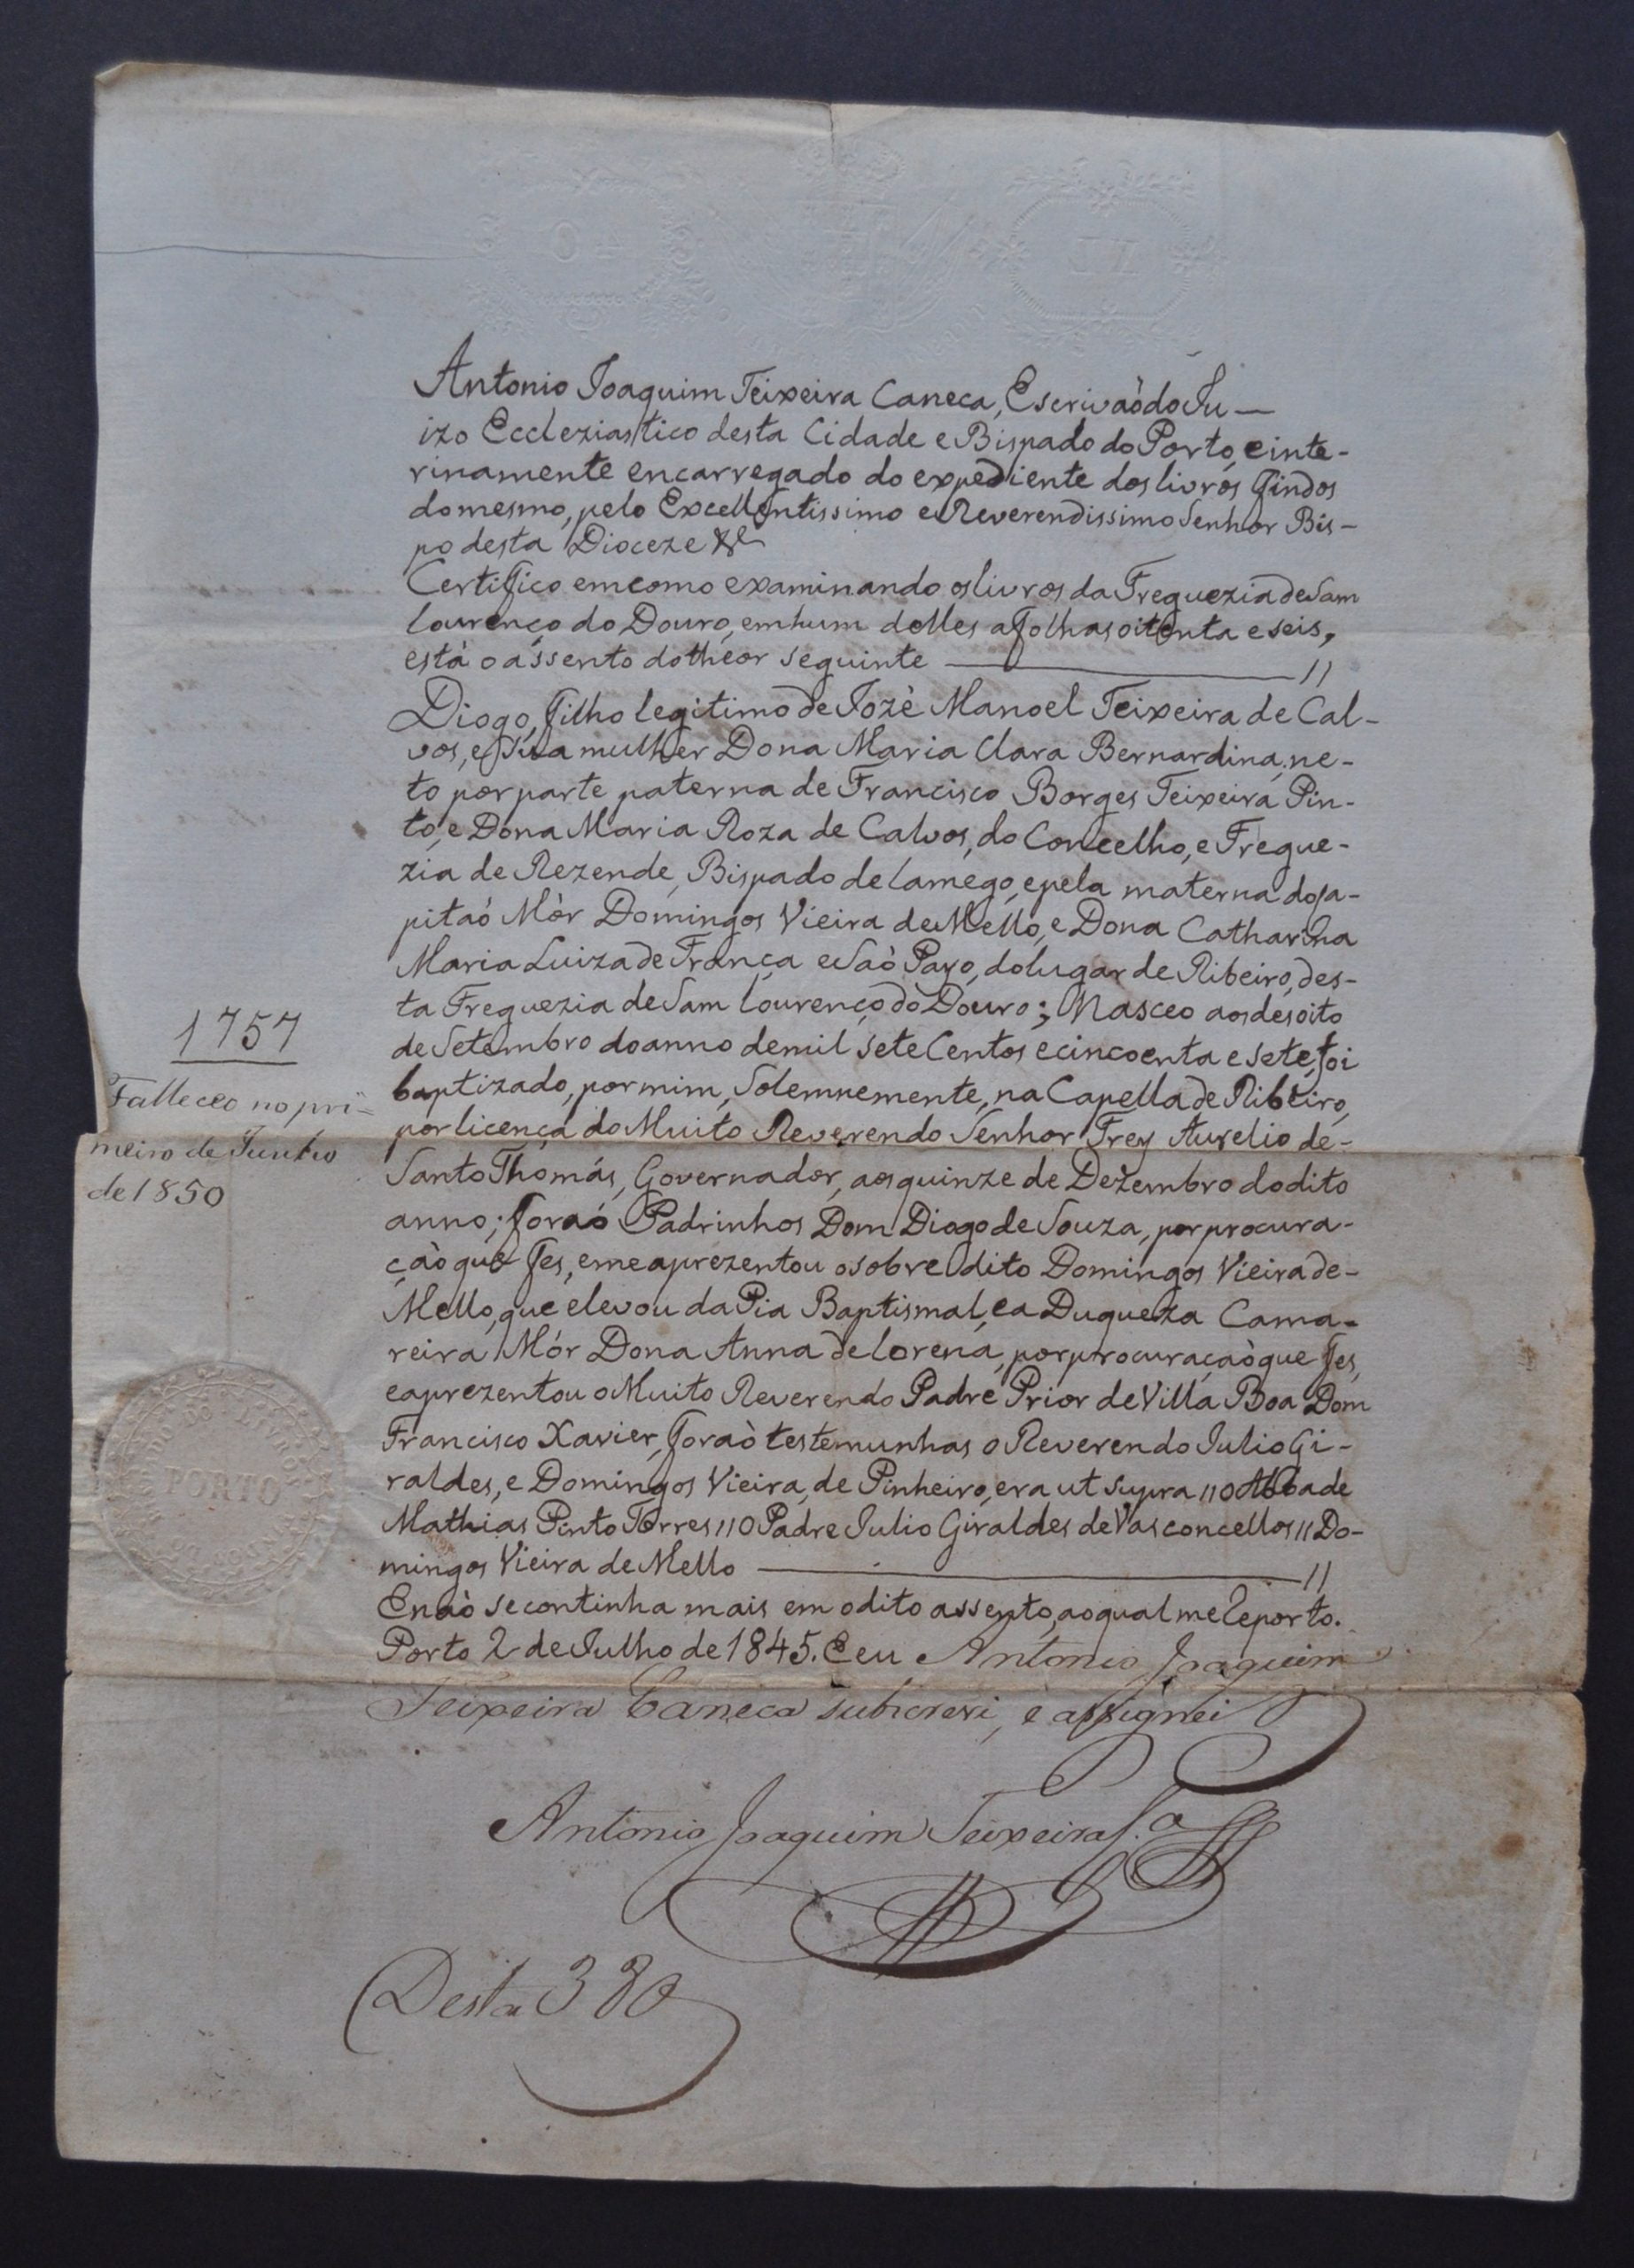 Antonio Joaquim Teixeira Caneca, Escrivaò do Ju—
izo Eccleziastico desta Cidade e Bispado do Porto, e inte-
rinamente encarregado do expediente dos livros findos
do mesmo, pelo Excellentissimo e Reverendissimo Senhor Bis-
po desta Dioceze &c
Certifico em como examinando os livros da Freguezia de Sam
Lourenço do Douro, em hum delles a folhas oitenta e seis,
està o assento do theor seguinte ——— //
Diogo, filho legitimo de Jozè Manoel Teixeira de Cal-
vos, e sua mulher Dona Maria Clara Bernardina; ne-
to por parte paterna de Francisco Borges Teixeira Pin-
to, e Dona Maria Roza de Calvos, do Concelho, e Fregue-
zia de Rezende, Bispado de Lamego, e pela materna do Ca-
pitaò Mòr Domingos Vieira de Mello, e Dona Catharina
Maria Luiza de França e Saò Payo, do lugar de Ribeiro, des-
ta Freguezia de Sam Lourenço do Douro; Nasceo aos desoito
de Setembro do anno de mil sete Centos e cincoenta e sete, foi
1757
baptizado, por mim, Solemnemente, na Capella de Ribeiro,
Falleceo no pri=
por licença do Muito Reverendo Senhor Frey Aurelio de-
meiro de Junho
Santo Thomás, Governador, aos quinze de Dezembro do dito
de 1850
anno; foraò Padrinhos Dom Diogo de Souza, por procura-
çaò que fes, e me aprezentou o sobredito Domingos Vieira de-
Mello, que elevou da Pia Baptismal, e a Duqueza Cama-
reira Mór Dona Anna de Lorena, por procuraçaò que fes,
e aprezentou o Muito Reverendo Padre Prior de Villa Boa Dom
Francisco Xavier, foraò testemunhas o Reverendo Julio Gi-
raldes, e Domingos Vieira, de Pinheiro, era ut supra // O Abbade
Mathias Pinto Torres // O Padre Julio Giraldes de Vasconcellos // Do-
mingos Vieira de Mello ——— //
E naò se continha mais em o dito assento, ao qual me reporto.
Porto 2 de Julho de 1845. E eu Antonio Joaquim
Teixeira Caneca subscrevi, e assignei
Antonio Joaquim Teixeira C.a
Desta 380
PORTO